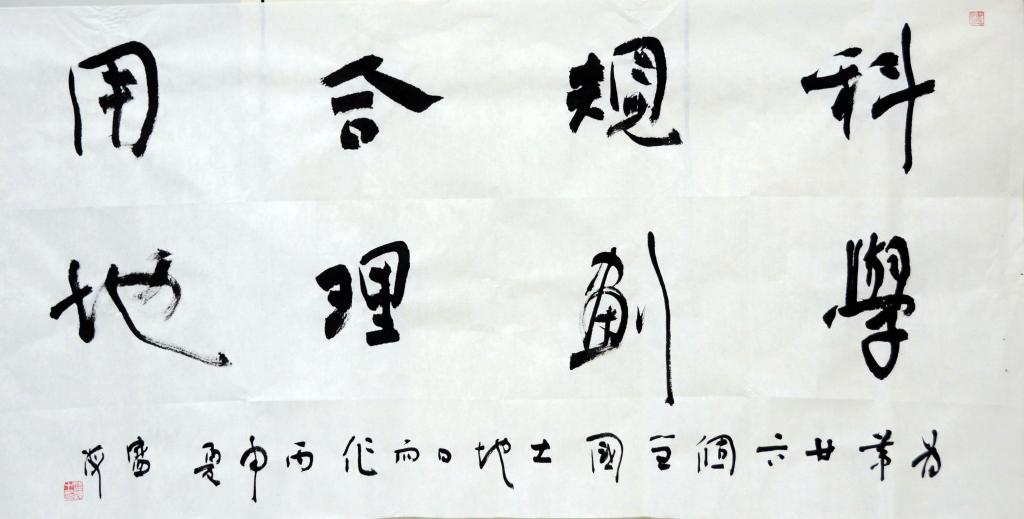 科學
規劃
合理
用地
為第廿六個全國土地日而作丙申夏